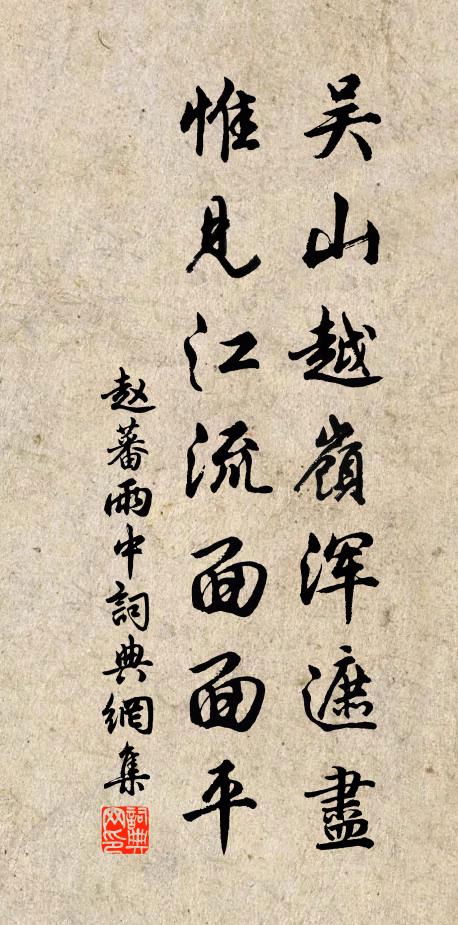 吴山越嶺浑遮盡
惟見江流面面平
赵蕃雨中詞典網集
詞典網印